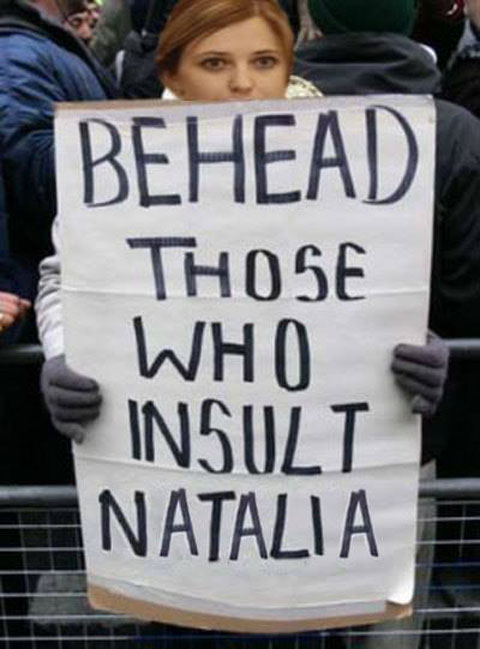 BEHEAD
THOSE
WHO
INSULT
NATALIA